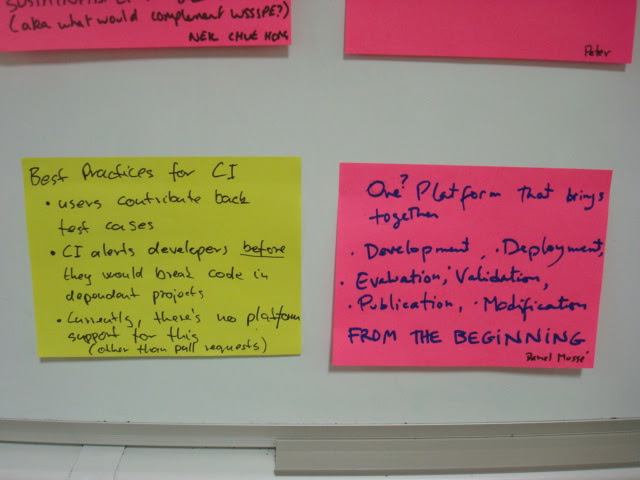 (aka what would complement WSSSPE?)
NEIL CHUE HONG
Peter
Best Practices for CI
• users contribute back
test cases
• CI alerts developers before
they would break code in
dependant projects
• Currently, there's no platform
support for this
(other than pull requests)
One? Platform that brings
together
• Development, • Deployment,
• Evaluation, • Validation,
• Publication, • Modification
FROM THE BEGINNING
Daniel Mossé